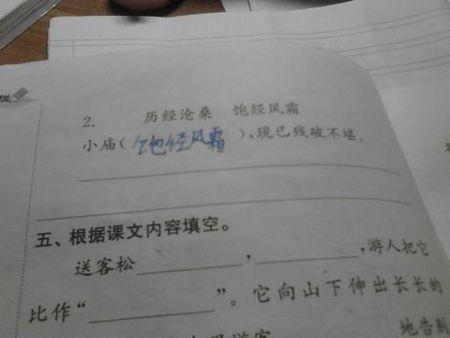 2. 历经沧桑 饱经风霜
小庙(饱经风霜),现已残破不堪。
五、根据课文内容填空。
送客松__________,__________,游人把它
比作“__________”。它向山下伸出长长的
地告别